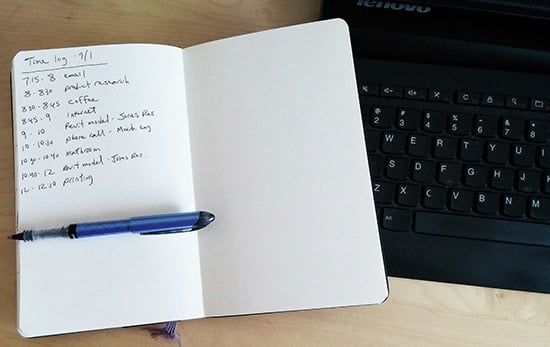 Time log - 9/1
7:15 - 8 email
8 - 8:30 product research
8:30 - 8:45 coffee
8:45 - 9 internet
9 - 10 Revit model - Jones Res.
10 - 10:30 phone call - Mech eng
10:30 - 10:40 bathroom
10:40 - 12 Revit model - Jones Res.
12 - 12:10 printing
lenovo
@ # $ % ^ & *
2 3 4 5 6 7 8
W E R T Y U
S D F G H J
Z X C V B N
Alt